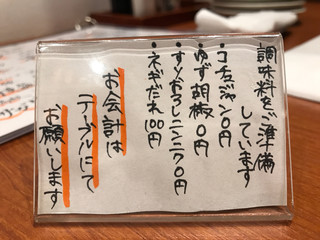 調味料をご準備
しています
・コチュジャン0円
・ゆず胡椒0円
・すりおろしニンニク0円
・ネギだれ100円
お会計は
テーブルにて
お願いします